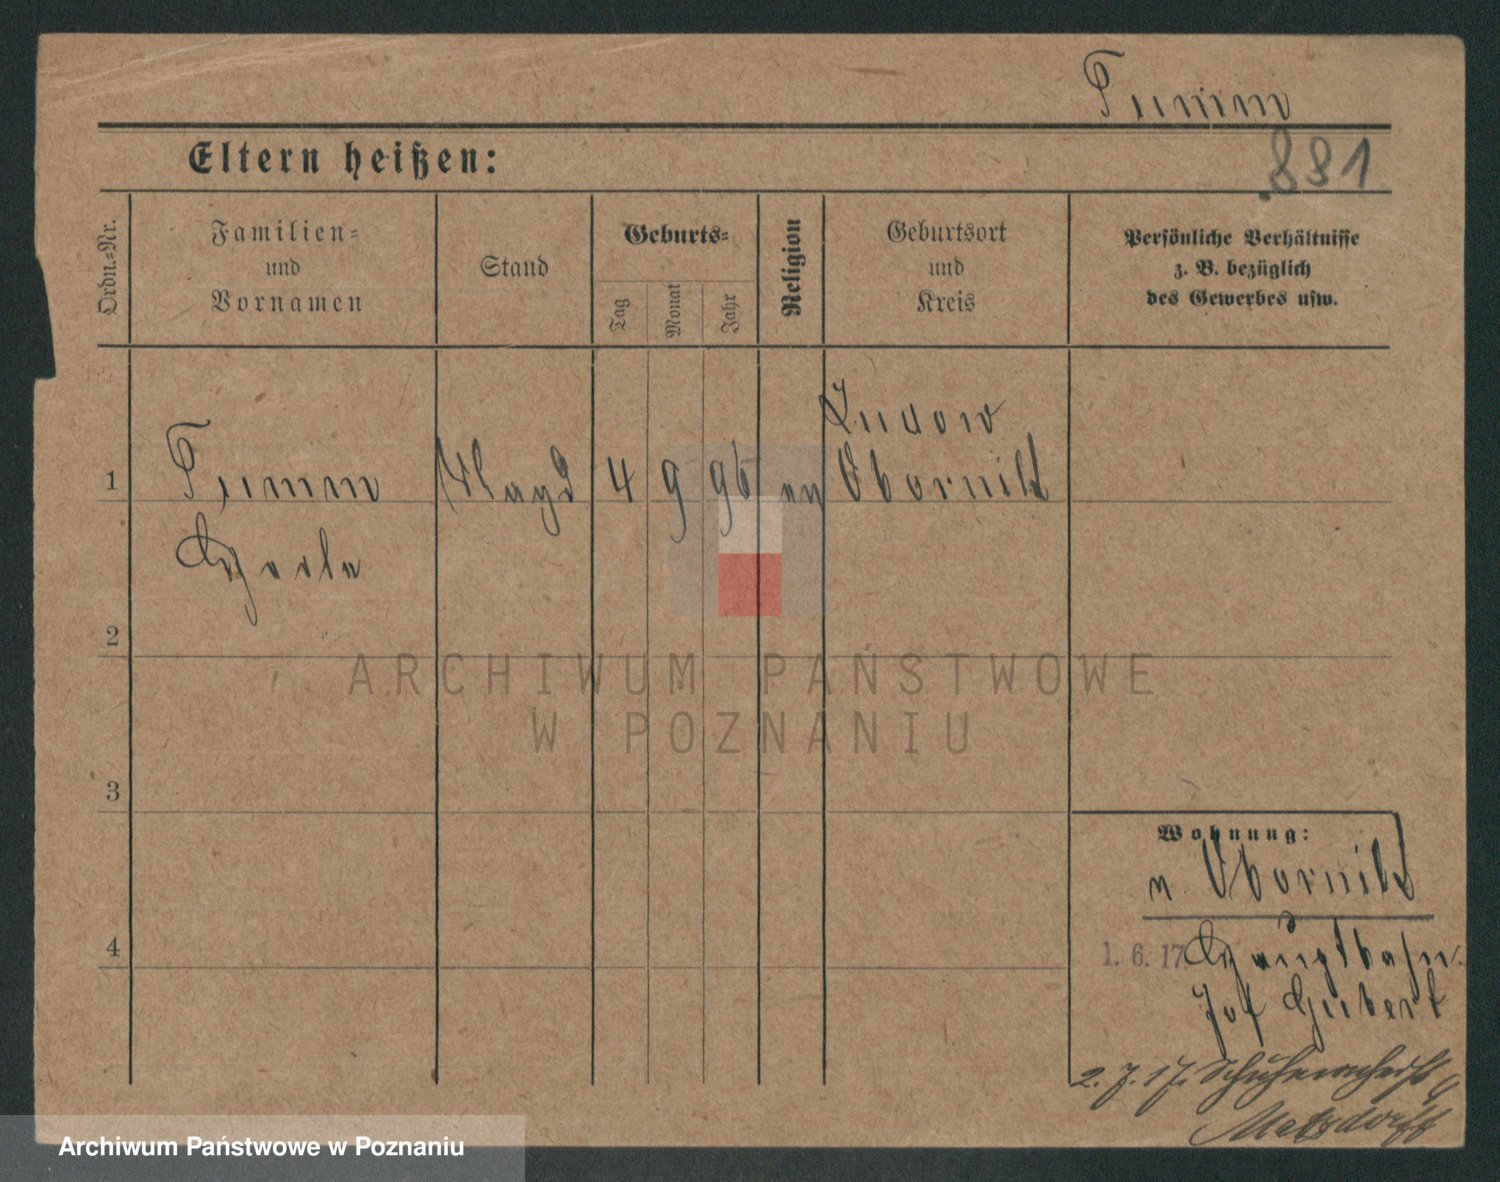 Timm
881
Eltern heißen:
Ordn.-Nr.
Familien-
und
Vornamen
Stand
Geburts-
Tag
Monat
Jahr
Religion
Geburtsort
und
Kreis
Persönliche Verhältnisse
z. B. bezüglich
des Gewerbes usw.
Ludow
1
Magd
4
9
96
ev
Obornik
2
3
4
Wohnung:
n. Obornik
1. 6. 17.
Hauptbahn.
Hubert
2. 7. 17.
Matzdorff
ARCHIWUM PAŃSTWOWE
W POZNANIU
Archiwum Państwowe w Poznaniu